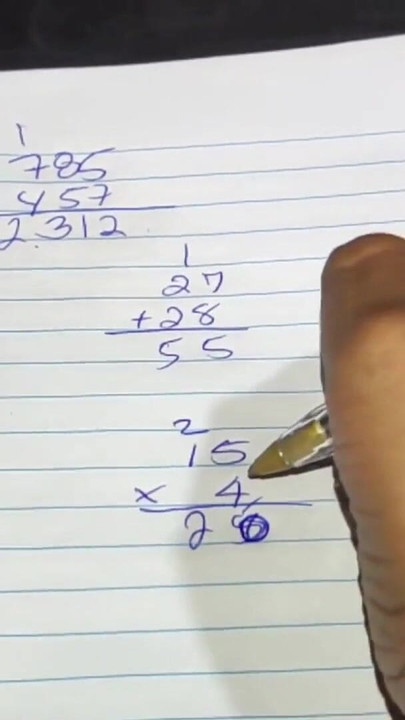 1
785
457
2.312
1
27
+28
55
2
15
x 4
2